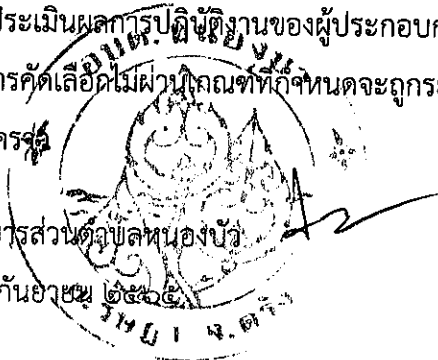 ประเมินผลการปฏิบัติงานของผู้ประกอบก
ารคัดเลือกไม่ผ่านเกณฑ์ที่กำหนดจะถูกระ
ารส่วนตำบลหนองบัว
กันยายน ๒๕๖๕
อบต. หนองบัว
รัษฎา จ.ตรัง